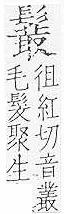 徂紅切音叢
毛髮聚生